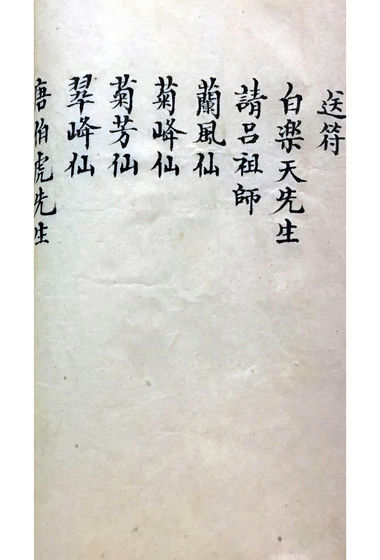 送符
白楽天先生
請呂祖師
蘭風仙
菊峰仙
菊芳仙
翠峰仙
唐伯虎先生